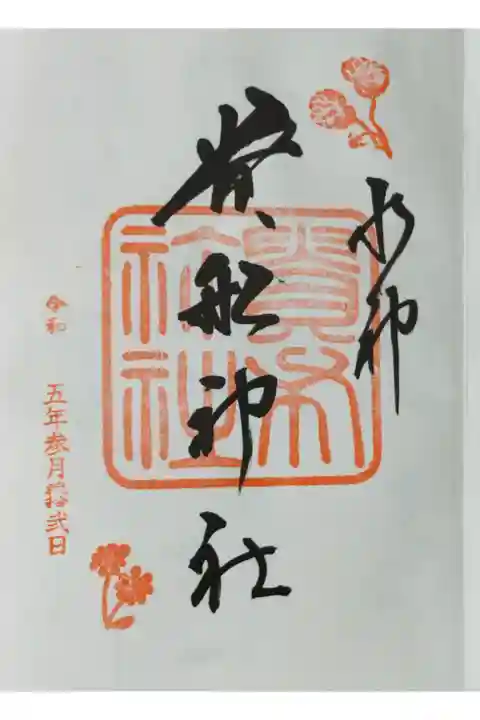 水神
貴船神社
貴布祢社
令和 五年参月拾弐日